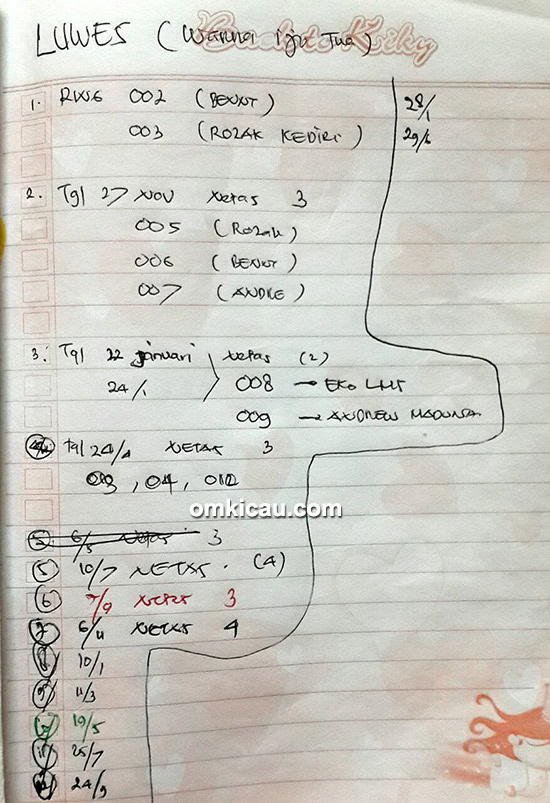 LUWES (Warna Iju Tua)
1. RING 002 (BENUT) 28/1
003 (ROZAK KEDIRI) 29/6
2. Tgl 27 NOV Netas 3
005 (Rozak)
006 (BENUT)
007 (ANDRE)
3. Tgl 22 januari Netas (2)
24/1 008 → EKO LMT
009 → ANDREW MADUNA
tgl 24/4 NETAS 3
, 04, 012
omkicau.com
5 6/5 Netas 3
5 10/7 NETAS. (4)
6 7/9 NETAS 3
7 6/11 NETAS 4
8 10/1
9 11/3
19/5
11 25/7
12 24/9